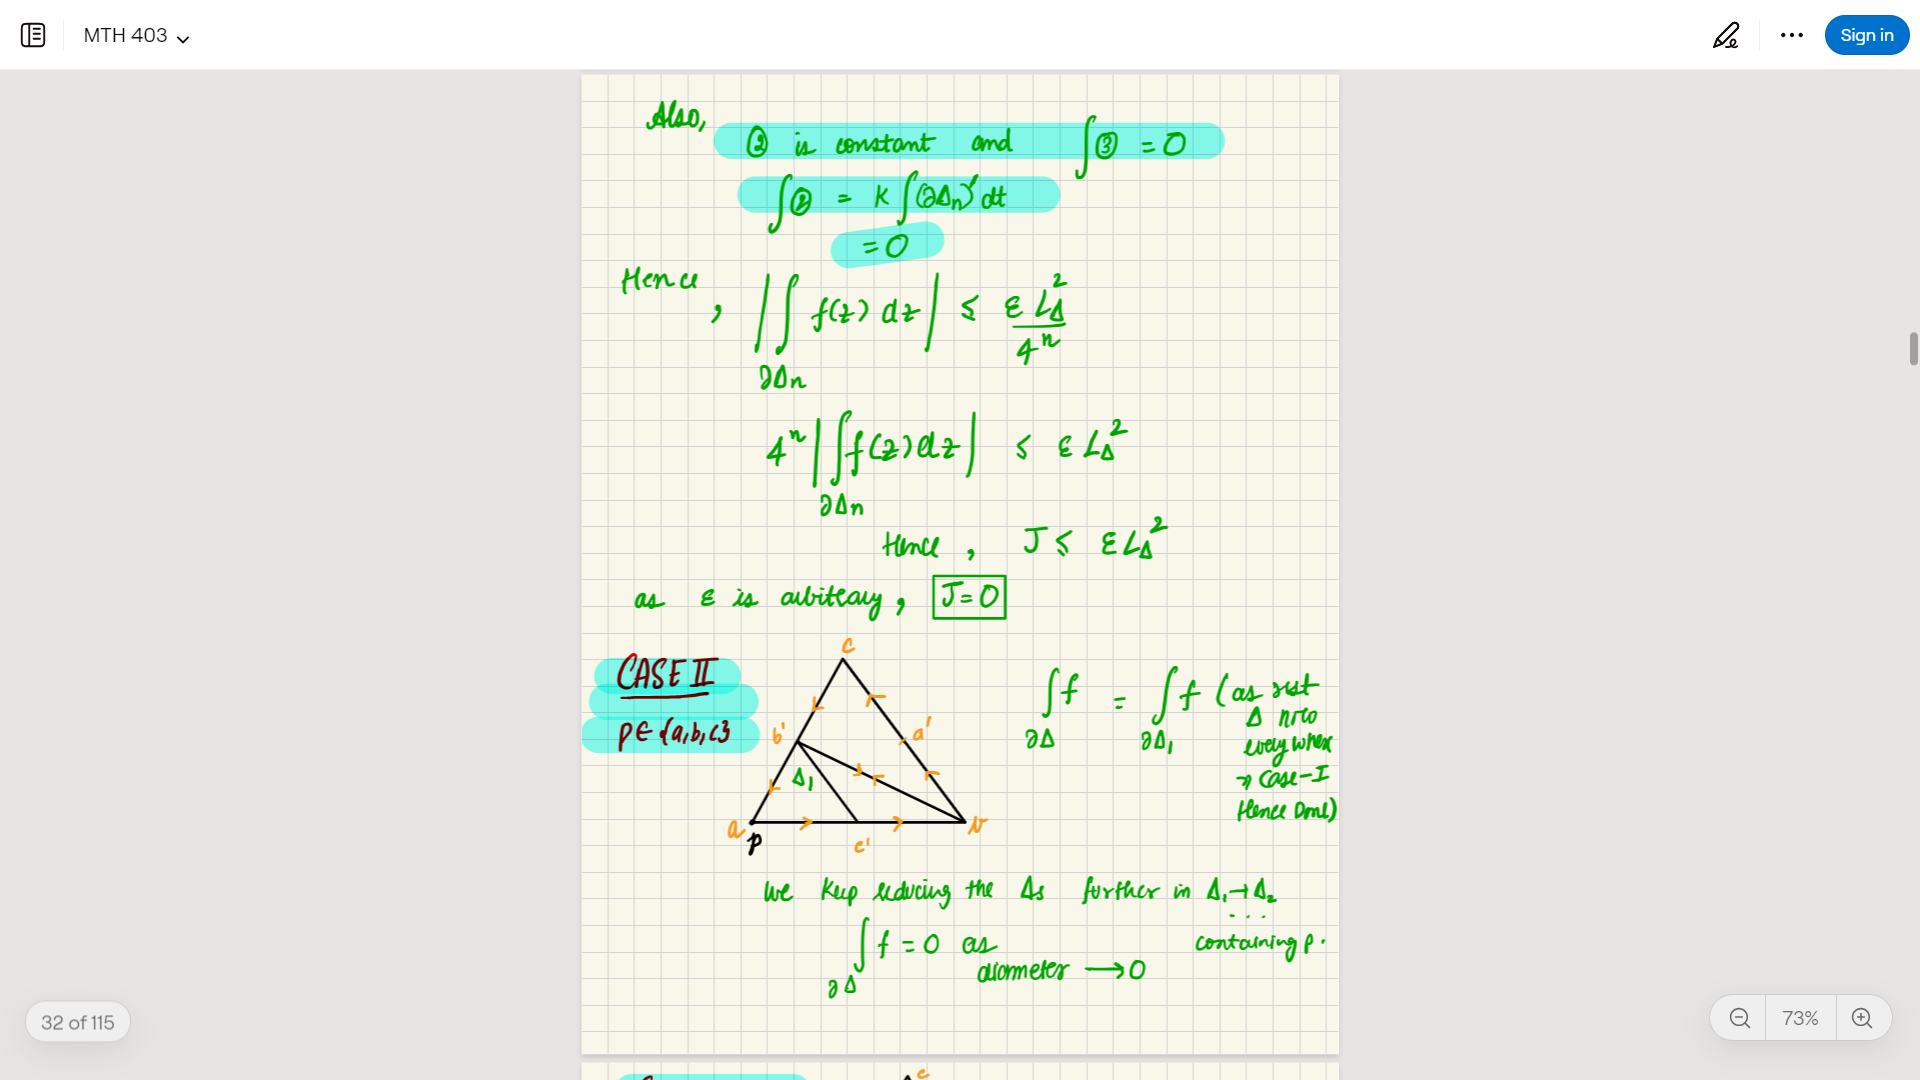 MTH 403
Sign in
Also,
② is constant and ∫③ = 0
∫② = K ∫(∂Δn)' dt
= 0
Hence, |∫ f(z) dz| ≤ ε L_Δ^2 / 4^n
∂Δn
4^n |∫ f(z) dz| ≤ ε L_Δ^2
∂Δn
Hence, J ≤ ε L_Δ^2
as ε is arbitrary, J = 0
CASE II
p ∈ {a,b,c}
c
b'
a'
Δ1
a
p
c'
b
∫f = ∫f (as rest
∂Δ ∂Δ1
Δ
everywhere
→ Case-I
Hence Done)
We Keep reducing the Δs further in Δ1→Δ2
...
containing p.
∫ f = 0 as
∂Δ
diameter → 0
32 of 115
73%
c